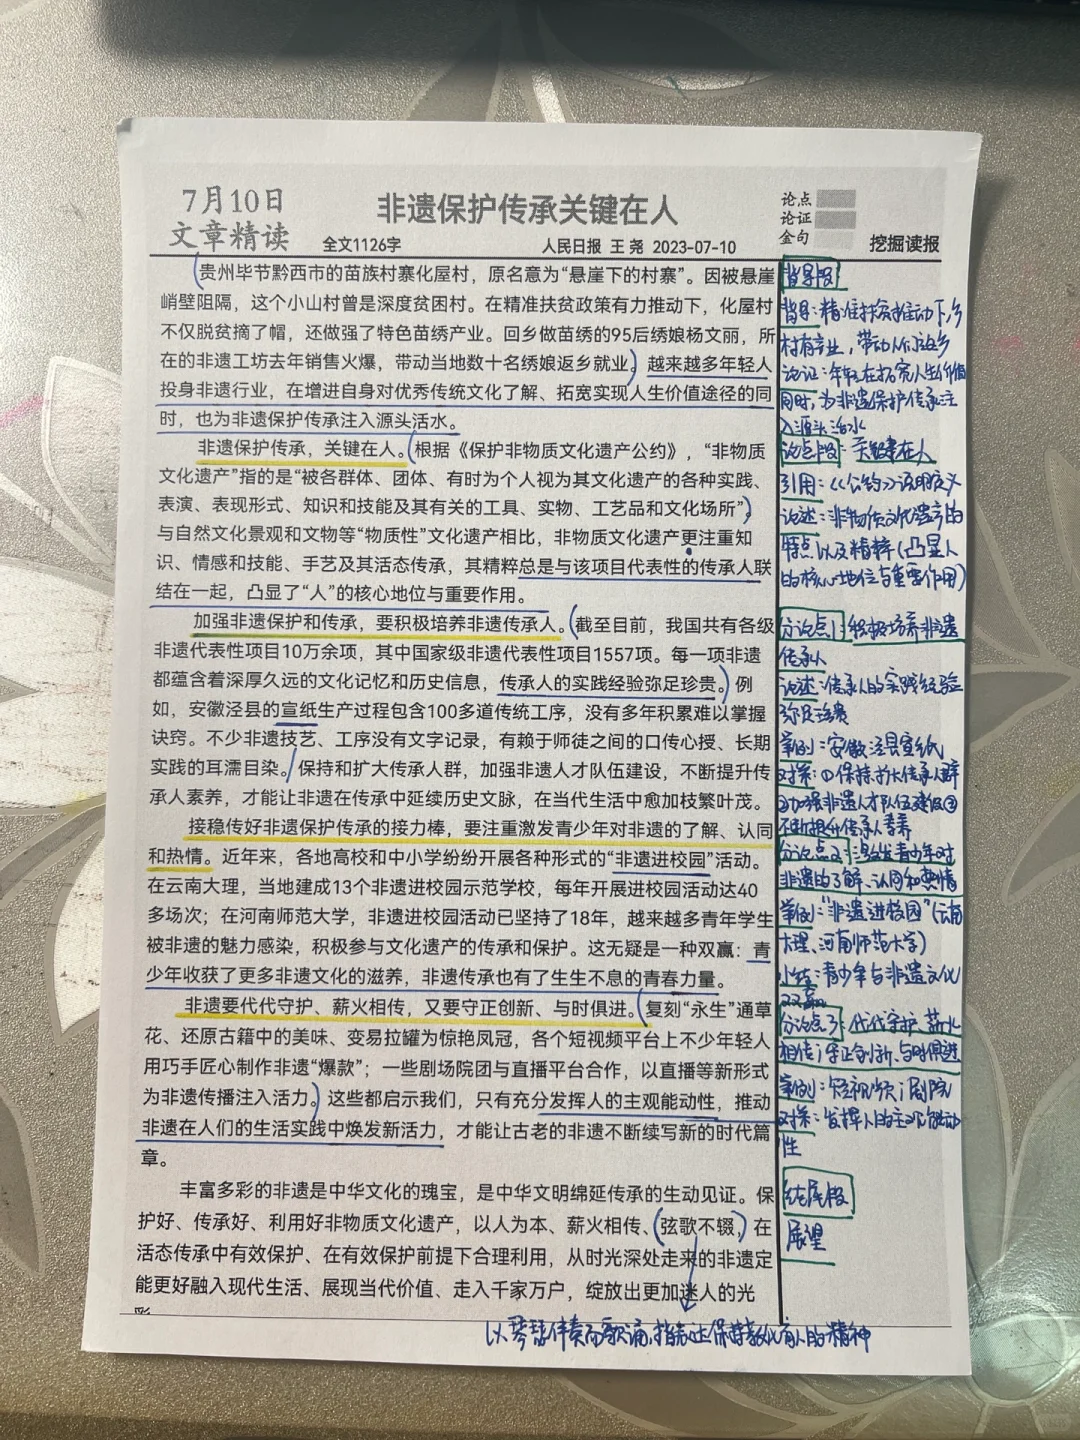 7月10日
文章精读
非遗保护传承关键在人
全文1126字
人民日报 王尧 2023-07-10
论点
论证
金句
挖掘读报
贵州毕节黔西市的苗族村寨化屋村，原名意为“悬崖下的村寨”。因被悬崖
峭壁阻隔，这个小山村曾是深度贫困村。在精准扶贫政策有力推动下，化屋村
不仅脱贫摘了帽，还做强了特色苗绣产业。回乡做苗绣的95后绣娘杨文丽，所
在的非遗工坊去年销售火爆，带动当地数十名绣娘返乡就业，越来越多年轻人
投身非遗行业，在增进自身对优秀传统文化了解、拓宽实现人生价值途径的同
时，也为非遗保护传承注入源头活水。
非遗保护传承，关键在人。根据《保护非物质文化遗产公约》，“非物质
文化遗产”指的是“被各群体、团体、有时为个人视为其文化遗产的各种实践、
表演、表现形式、知识和技能及其有关的工具、实物、工艺品和文化场所”，
与自然文化景观和文物等“物质性”文化遗产相比，非物质文化遗产更注重知
识、情感和技能、手艺及其活态传承，其精粹总是与该项目代表性的传承人联
结在一起，凸显了“人”的核心地位与重要作用。
加强非遗保护和传承，要积极培养非遗传承人。截至目前，我国共有各级
非遗代表性项目10万余项，其中国家级非遗代表性项目1557项。每一项非遗
都蕴含着深厚久远的文化记忆和历史信息，传承人的实践经验弥足珍贵。例
如，安徽泾县的宣纸生产过程包含100多道传统工序，没有多年积累难以掌握
诀窍。不少非遗技艺、工序没有文字记录，有赖于师徒之间的口传心授、长期
实践的耳濡目染。保持和扩大传承人群，加强非遗人才队伍建设，不断提升传
承人素养，才能让非遗在传承中延续历史文脉，在当代生活中愈加枝繁叶茂。
接稳传好非遗保护传承的接力棒，要注重激发青少年对非遗的了解、认同
和热情。近年来，各地高校和中小学纷纷开展各种形式的“非遗进校园”活动。
在云南大理，当地建成13个非遗进校园示范学校，每年开展进校园活动达40
多场次；在河南师范大学，非遗进校园活动已坚持了18年，越来越多青年学生
被非遗的魅力感染，积极参与文化遗产的传承和保护。这无疑是一种双赢：青
少年收获了更多非遗文化的滋养，非遗传承也有了生生不息的青春力量。
非遗要代代守护、薪火相传，又要守正创新、与时俱进。复刻“永生”通草
花、还原古籍中的美味、变易拉罐为惊艳凤冠，各个短视频平台上不少年轻人
用巧手匠心制作非遗“爆款”；一些剧场院团与直播平台合作，以直播等新形式
为非遗传播注入活力。这些都启示我们，只有充分发挥人的主观能动性，推动
非遗在人们的生活实践中焕发新活力，才能让古老的非遗不断续写新的时代篇
章。
丰富多彩的非遗是中华文化的瑰宝，是中华文明绵延传承的生动见证。保
护好、传承好、利用好非物质文化遗产，以人为本、薪火相传、弦歌不辍，在
活态传承中有效保护、在有效保护前提下合理利用，从时光深处走来的非遗定
能更好融入现代生活、展现当代价值、走入千家万户，绽放出更加迷人的光
彩
背景段
背景：精准扶贫推动下,乡
村有产业，带动人们返乡
论证：年轻在拓宽人生价值
同时，为非遗保护传承注
入源头活水
论点段：关键在人
引用：《公约》说明定义
论述：非物质文化遗产的
特点以及精粹(凸显人
的核心地位与重要作用)
分论点1：积极培养非遗
传承人
论述：传承人的实践经验
弥足珍贵
举例：安徽泾县宣纸
对策：①保持扩大传承人群
②加强非遗人才队伍建设③
不断提升传承人素养
分论点2：激发青少年对
非遗的了解、认同和热情
举例：“非遗进校园”(云南
大理、河南师范大学)
小结：青少年与非遗文化
双赢
分论点3：代代守护 薪火
相传；守正创新、与时俱进
举例：短视频；剧院
对策：发挥人的主观能动
性
结尾段
展望
以琴瑟伴奏而歌诵,指 保持教化育人的精神